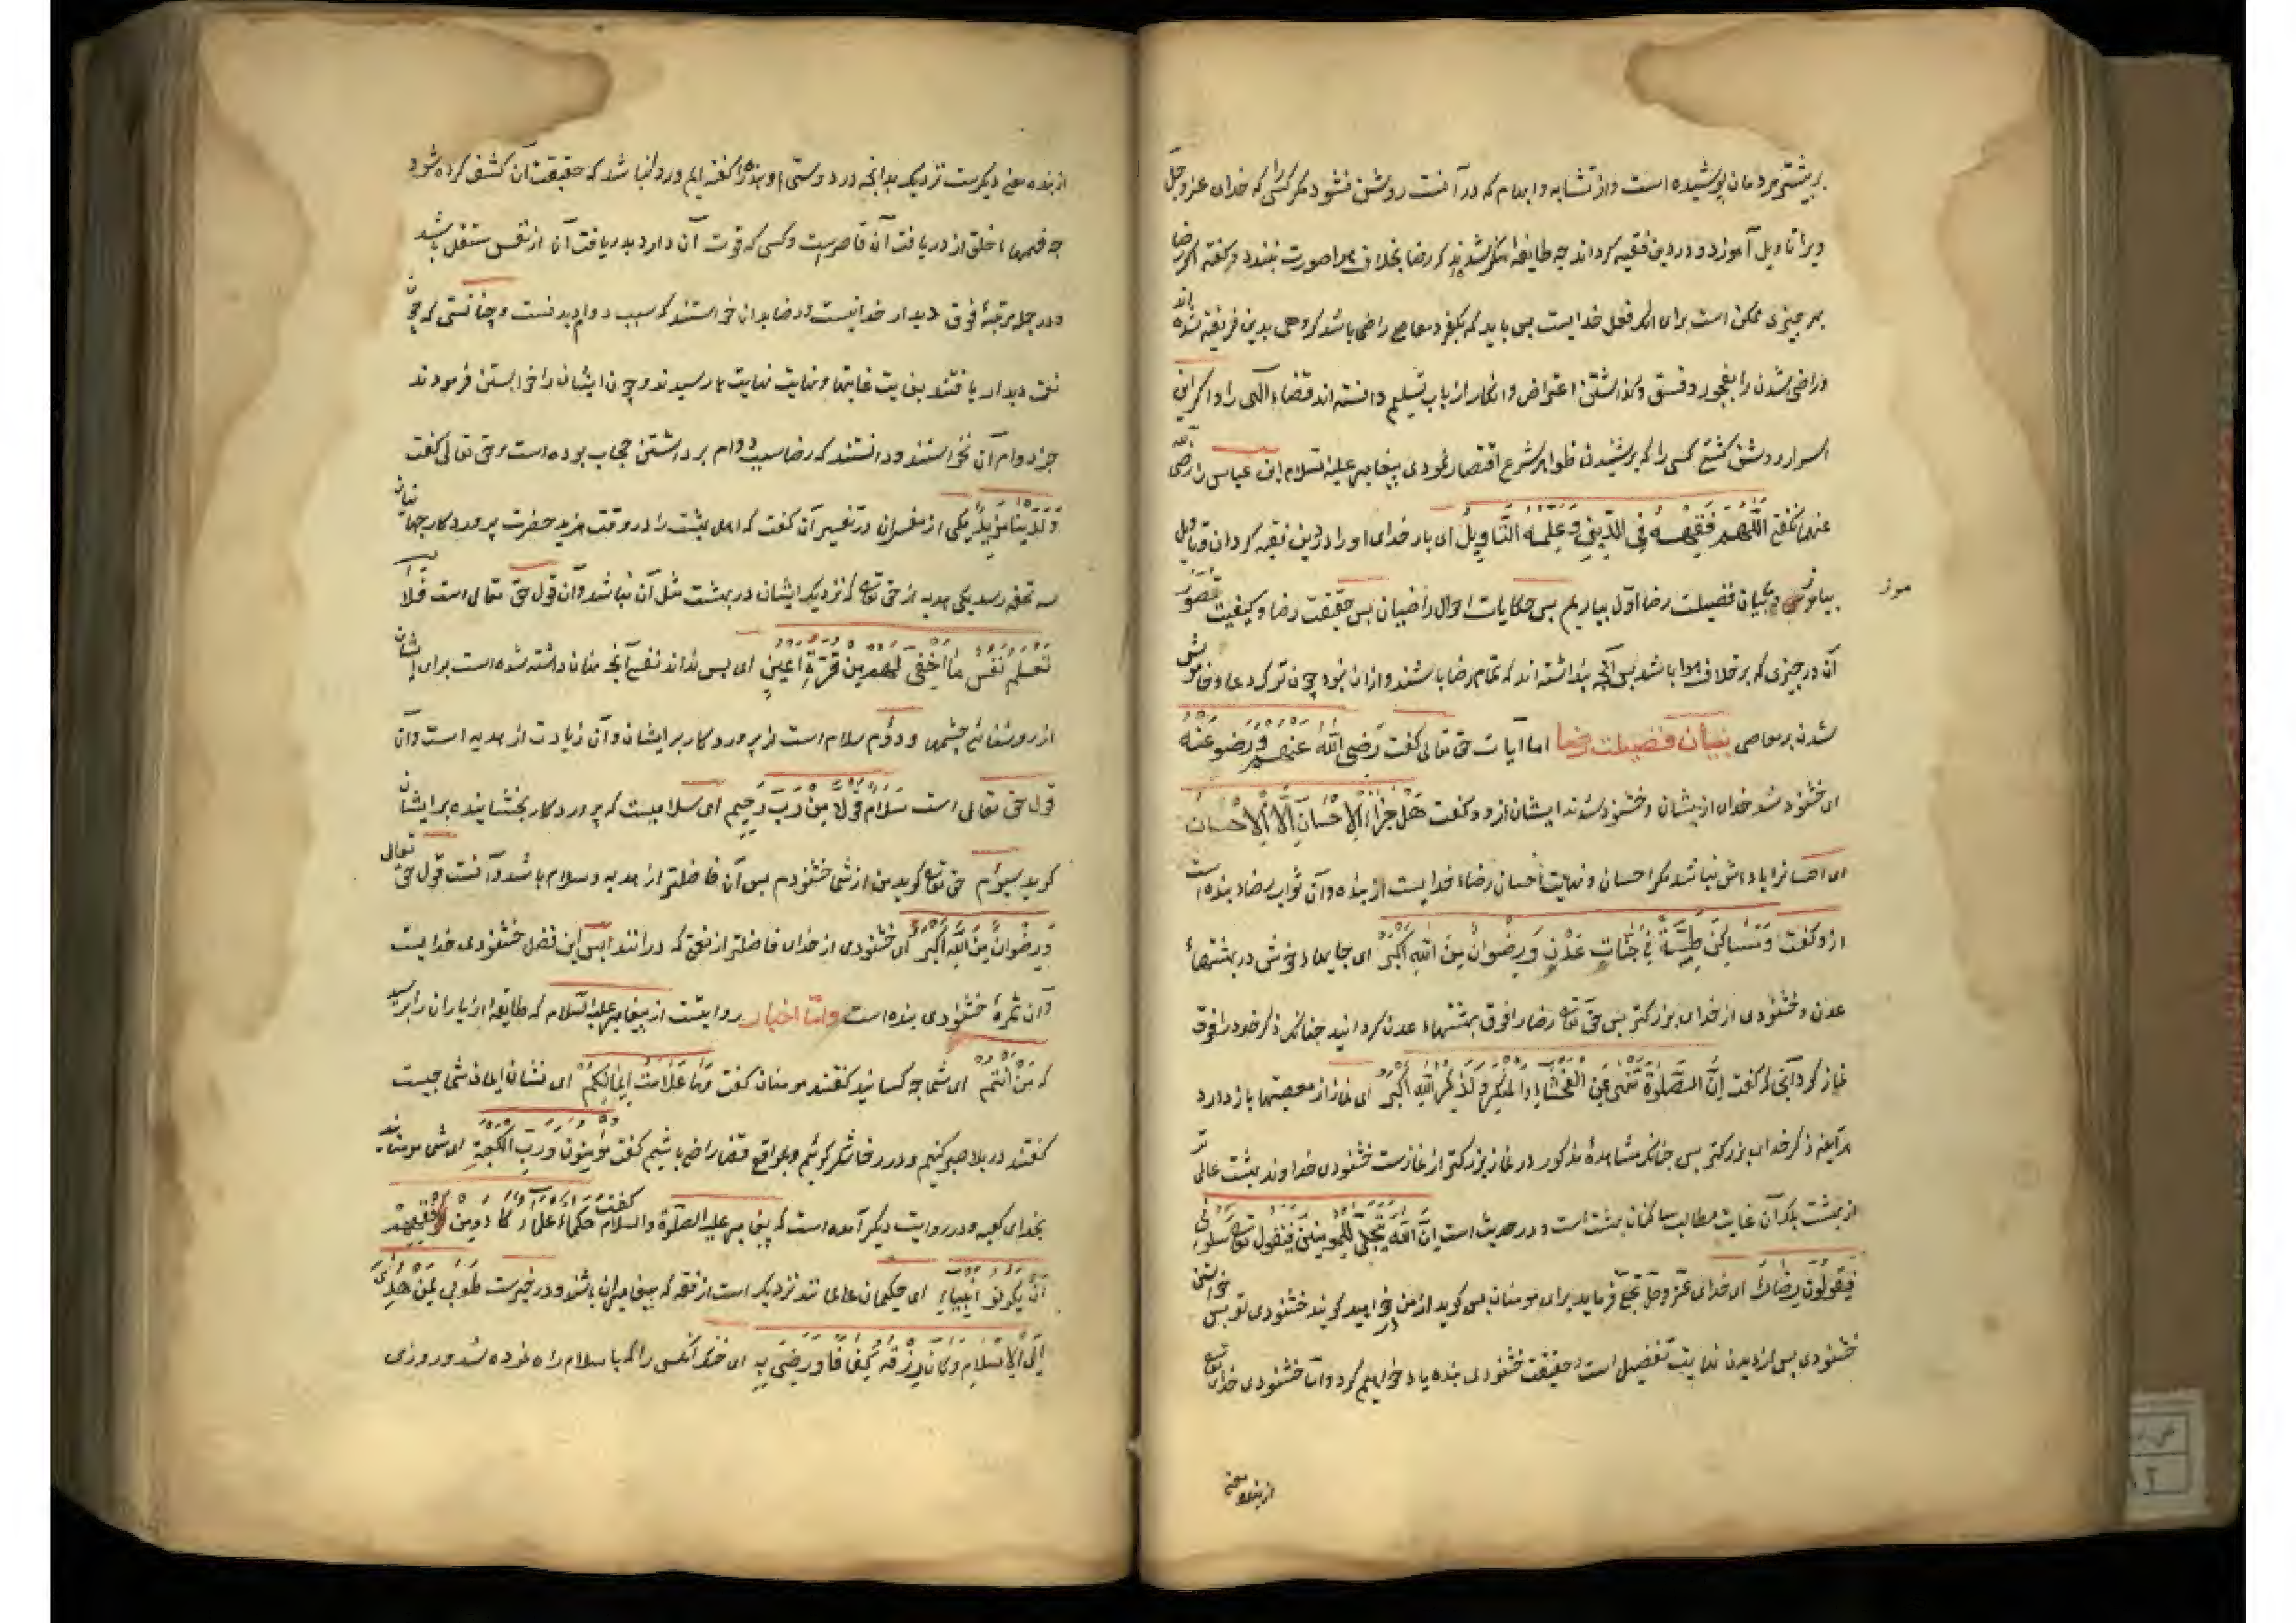 بر بیشتر مردمان پوشیده است و از تشابه و ابهام که در آنست روشن نشود مگر کسی را که خدای عز و جل
ویرا تاویل آموزد و در دین فقیه کرداند چه طایفه منکر شدند که رضا بخلاف هوا صورت نبندد و کفته اکر رضا
بهر چیزی ممکن است برای انکه فعل خدایست پس باید که بکفر و معاصی راضی باشد کروهی بدین فریفته شده اند
و راضی شدن را بفجور و فسق و کذاشتن اعتراض و انکار از باب تسلیم دانسته اند قضاء الهی را و اکر این
اسرار روشن کشتی کسی را که بر شنیدن ظواهر شرع اقتصار نمودی پیغامبر علیه السلام ابن عباس را رضی الله
عنهما نکفتی اللهم فقهه فی الدین و علمه التاویل ای بار خدای او را در دین فقیه کردان و تاویل
بیاموز و بیان فضیلت رضا اول بیاریم پس حکایات احوال راضیان پس حقیقت رضا و کیفیت تصور
موز
آن در چیزی که برخلاف هوا باشد پس آنچه پنداشته اند که تمام رضا باشند و از ان نبود چون ترک دعا و خاموش
شدن بر معاصی بیان فضیلت رضا اما آیات حق تعالی کفت رضی الله عنهم و رضو عنه
ای خشنود شد خدای ازیشان و خشنود شدند ایشان ازو و کفت هل جزاء الاحسان الا الاحسان
ای احسانرا پاداش نباشد مکر احسان و نهایت احسان رضاء خدایست از بنده و آن ثواب رضاء بنده است
ازو کفت و مساکن طیبة فی جنات عدن و رضوان من الله اکبر ای جایها خوش در بهشتهاء
عدن و خشنودی از خدای بزرکتر پس حق تعالی رضا را فوق بهشتهاء عدن کردانید چنانکه ذکر خود را فوق
نماز کرد آنجا که کفت ان الصلوة تنهی عن الفحشاء والمنکر ولذکر الله اکبر ای نماز از معصیتها باز دارد
هر آینه ذکر خدای بزرکتر پس چنانکه مشاهدهٔ مذکور در نماز بزرکتر از نمازست خشنودی خداوند بهشت عالی تر
از بهشت بلکه آن غایت مطالب ساکنان بهشت است و در حدیث است ان الله یتجلی للمومنین فیقول تعالی سلونی
فیقولون رضاک ای خدای عز و جل تجلی فرماید برای مومنان پس کوید از من خواهید کویند خشنودی تو پس خواستن
خشنودی پس از دیدن نهایت تفضیل است و حقیقت خشنودی بنده یاد خواهیم کرد و اما خشنودی خدای تعالی
از بنده معنی
از بنده معنی دیکرست نزدیک بدانچه در دوستی او بنده را کفته ایم و روا نباشد که حقیقت آن کشف کرده شود
چه فهمهاء خلق از دریافت آن قاصرست و کسی که قوت آن دارد بدریافت آن از نفس مستقل باشد
و در جمله مرتبهٔ فوق دیدار خدا نیست و رضا بدان خواستند که سبب دوام دیدنست و چنانستی که چون
نعمت دیدار یافتند بغایت غایتها و نهایت نهایت ها رسیدند و چون ایشان را خواستن فرمودند
جز دوام آن نخواستند و دانستند که رضا سبب دوام برداشتن حجاب بوده است و حق تعالی کفت
ولدینا مزید یکی از مفسران در تفسیر آن کفت که اهل بهشت را در وقت مزید حضرت پروردکار جهانیان
سه تحفه رسد یکی هدیه از حق تعالی که نزدیک ایشان در بهشت مثل آن نباشد و آن قول حق تعالی است فلا
تعلم نفس ما اخفی لهم من قرة اعین ای پس نداند نفسی آنچه پنهان داشته شده است برای ایشان
از روشنائی چشمها و دوم سلام است از پروردکار بر ایشان و آن زیادت از هدیه است و آن
قول حق تعالی است سلام قولا من رب رحیم ای سلامیست که پروردکار بخشاینده بر ایشان
کوید سیوم حق تعالی کوید من از شما خشنودم پس آن فاضلتر از هدیه و سلام باشد و آنست قول حق تعالی
و رضوان من الله اکبر ای خشنودی از خدای فاضلتر از نعمتی که در انند پس این فضل خشنودی خدایست
و آن ثمرهٔ خشنودی بنده است و اما اخبار روایتست از پیغامبر علیه السلام که طایفه از یاران را پرسید
که من انتم ای شما چه کسانید کفتند مومنان کفت وما علامت ایمانکم ای نشان ایمان شما چیست
کفتند در بلا صبر کنیم و در رخا شکر کوئیم و بمواقع قضا راضی باشیم کفت مؤمنون و رب الکعبة ای شما مومنانید
بخدای کعبه و در روایت دیکر آمده است که پیغامبر علیه الصلوة والسلام کفت حکماء علماء کادو من فقههم
ان یکونو انبیاء ای حکیمان عالمانند نزدیک است از فقه که پیغامبران باشند و در خبرست طوبی لمن هدی
الی الاسلام وکان رزقه کفافا ورضی به ای خنک آنکس را که باسلام راه نموده شد و روزی